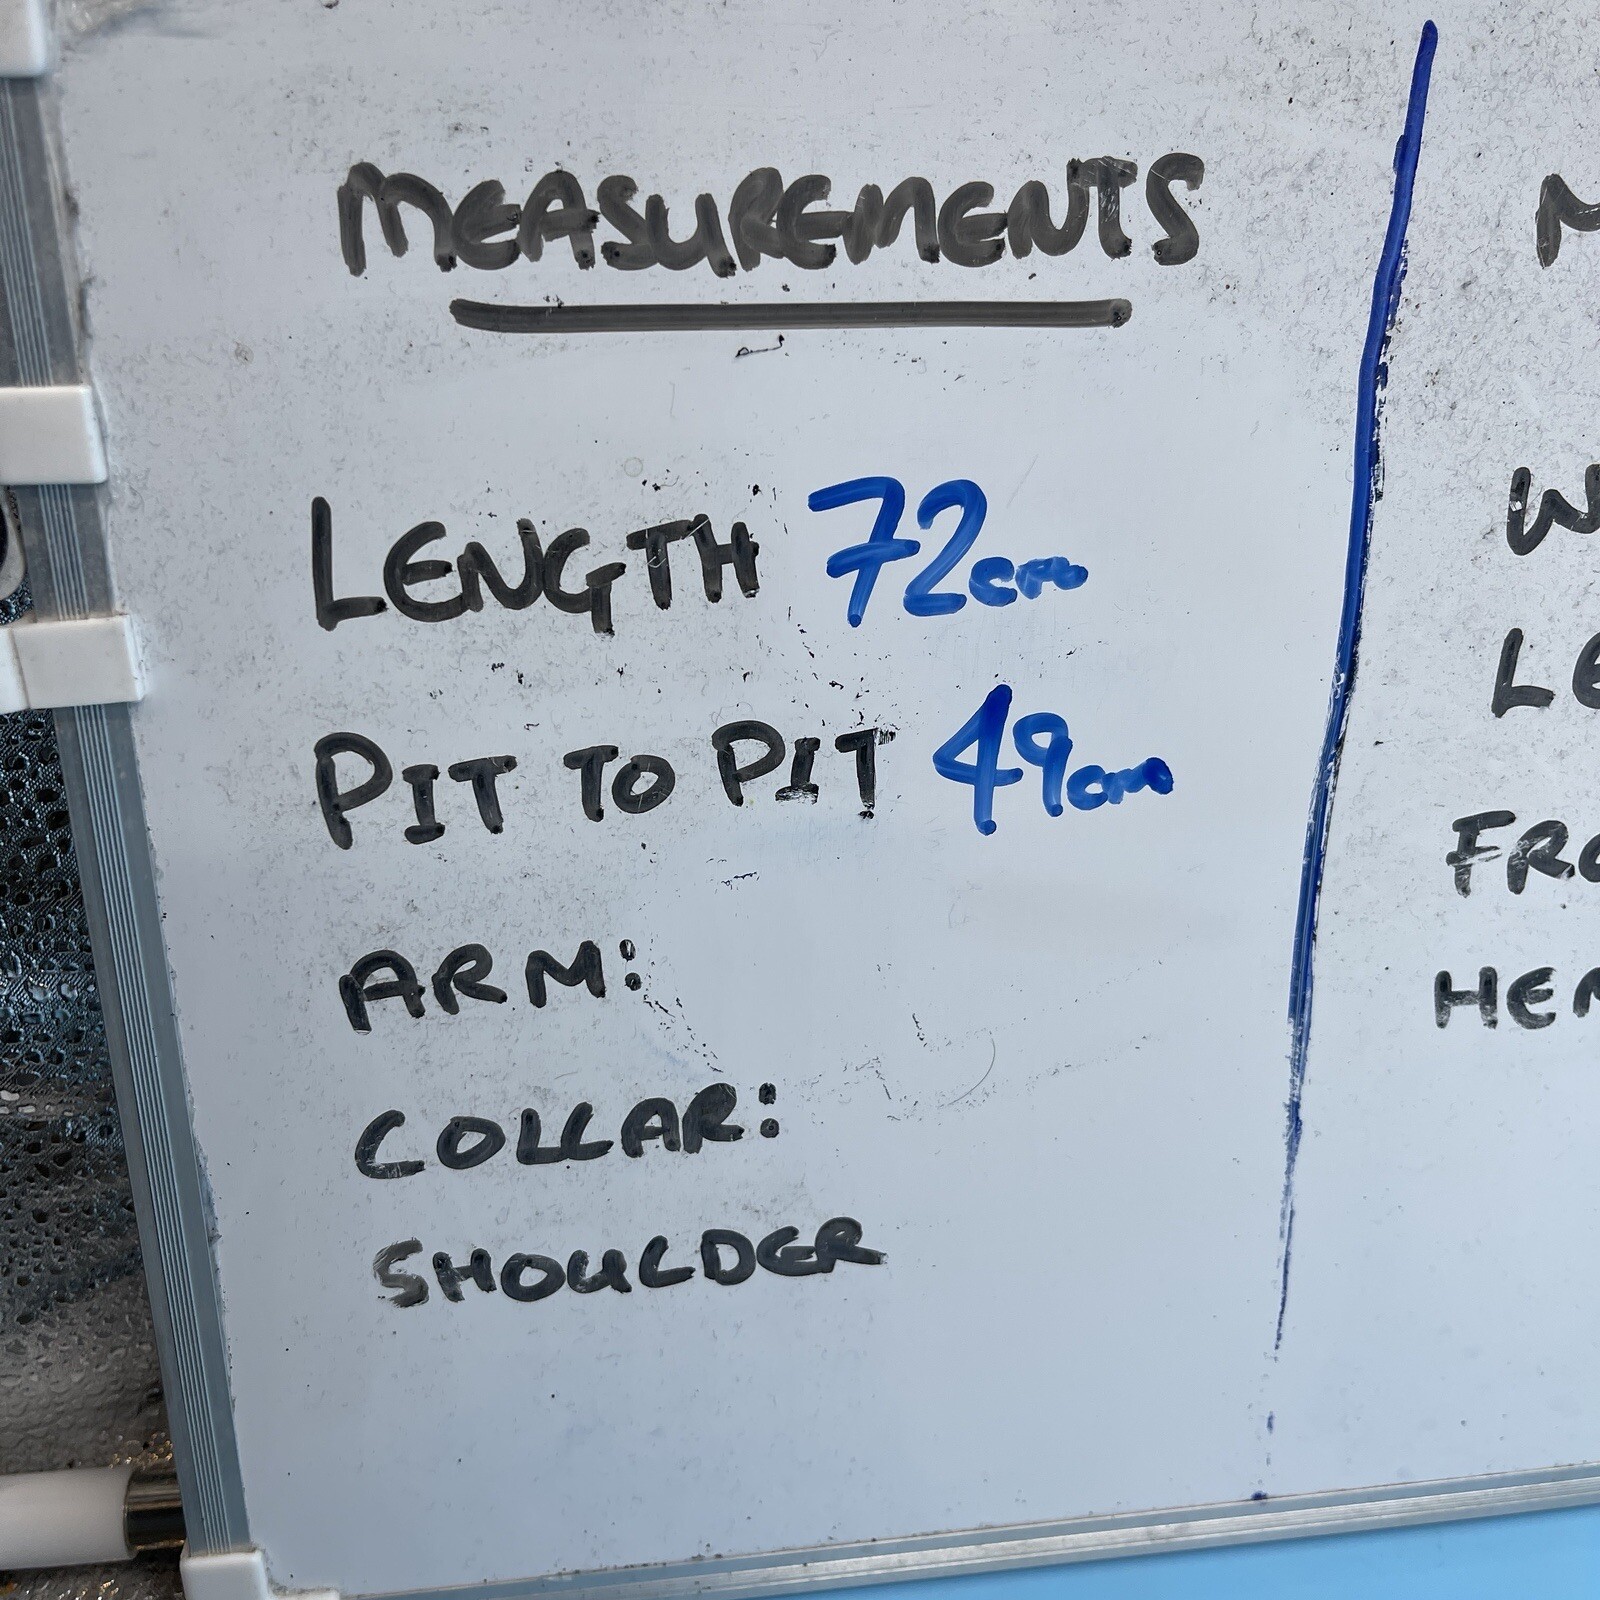 MEASUREMENTS
LENGTH 72cm
PIT TO PIT 49cm
ARM:
COLLAR:
SHOULDER